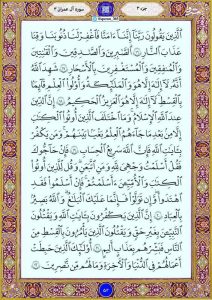 سورة آل عمران ٣
جزء ٣
الَّذِينَ يَقُولُونَ رَبَّنَا إِنَّنَا ءَامَنَّا فَاغْفِرْ لَنَا ذُنُوبَنَا وَقِنَا
عَذَابَ النَّارِ ١٦ الصَّٰبِرِينَ وَالصَّٰدِقِينَ وَالْقَٰنِتِينَ
وَالْمُنفِقِينَ وَالْمُسْتَغْفِرِينَ بِالْأَسْحَارِ ١٧ شَهِدَ اللَّهُ
أَنَّهُ لَا إِلَٰهَ إِلَّا هُوَ وَالْمَلَٰئِكَةُ وَأُولُوا الْعِلْمِ قَائِمًا
بِالْقِسْطِ لَا إِلَٰهَ إِلَّا هُوَ الْعَزِيزُ الْحَكِيمُ ١٨ إِنَّ الدِّينَ
عِندَ اللَّهِ الْإِسْلَٰمُ وَمَا اخْتَلَفَ الَّذِينَ أُوتُوا الْكِتَٰبَ
إِلَّا مِن بَعْدِ مَا جَاءَهُمُ الْعِلْمُ بَغْيًا بَيْنَهُمْ وَمَن يَكْفُرْ
بِـَٔايَٰتِ اللَّهِ فَإِنَّ اللَّهَ سَرِيعُ الْحِسَابِ ١٩ فَإِنْ حَاجُّوكَ
فَقُلْ أَسْلَمْتُ وَجْهِيَ لِلَّهِ وَمَنِ اتَّبَعَنِ وَقُل لِّلَّذِينَ أُوتُوا
الْكِتَٰبَ وَالْأُمِّيِّـۧنَ ءَأَسْلَمْتُمْ فَإِنْ أَسْلَمُوا فَقَدِ
اهْتَدَوا وَّإِن تَوَلَّوْا فَإِنَّمَا عَلَيْكَ الْبَلَٰغُ وَاللَّهُ بَصِيرٌ
بِالْعِبَادِ ٢٠ إِنَّ الَّذِينَ يَكْفُرُونَ بِـَٔايَٰتِ اللَّهِ وَيَقْتُلُونَ
النَّبِيِّـۧنَ بِغَيْرِ حَقٍّ وَيَقْتُلُونَ الَّذِينَ يَأْمُرُونَ بِالْقِسْطِ مِنَ
النَّاسِ فَبَشِّرْهُم بِعَذَابٍ أَلِيمٍ ٢١ أُولَٰئِكَ الَّذِينَ حَبِطَتْ
أَعْمَٰلُهُمْ فِي الدُّنْيَا وَالْءَاخِرَةِ وَمَا لَهُم مِّن نَّٰصِرِينَ ٢٢
٥٢